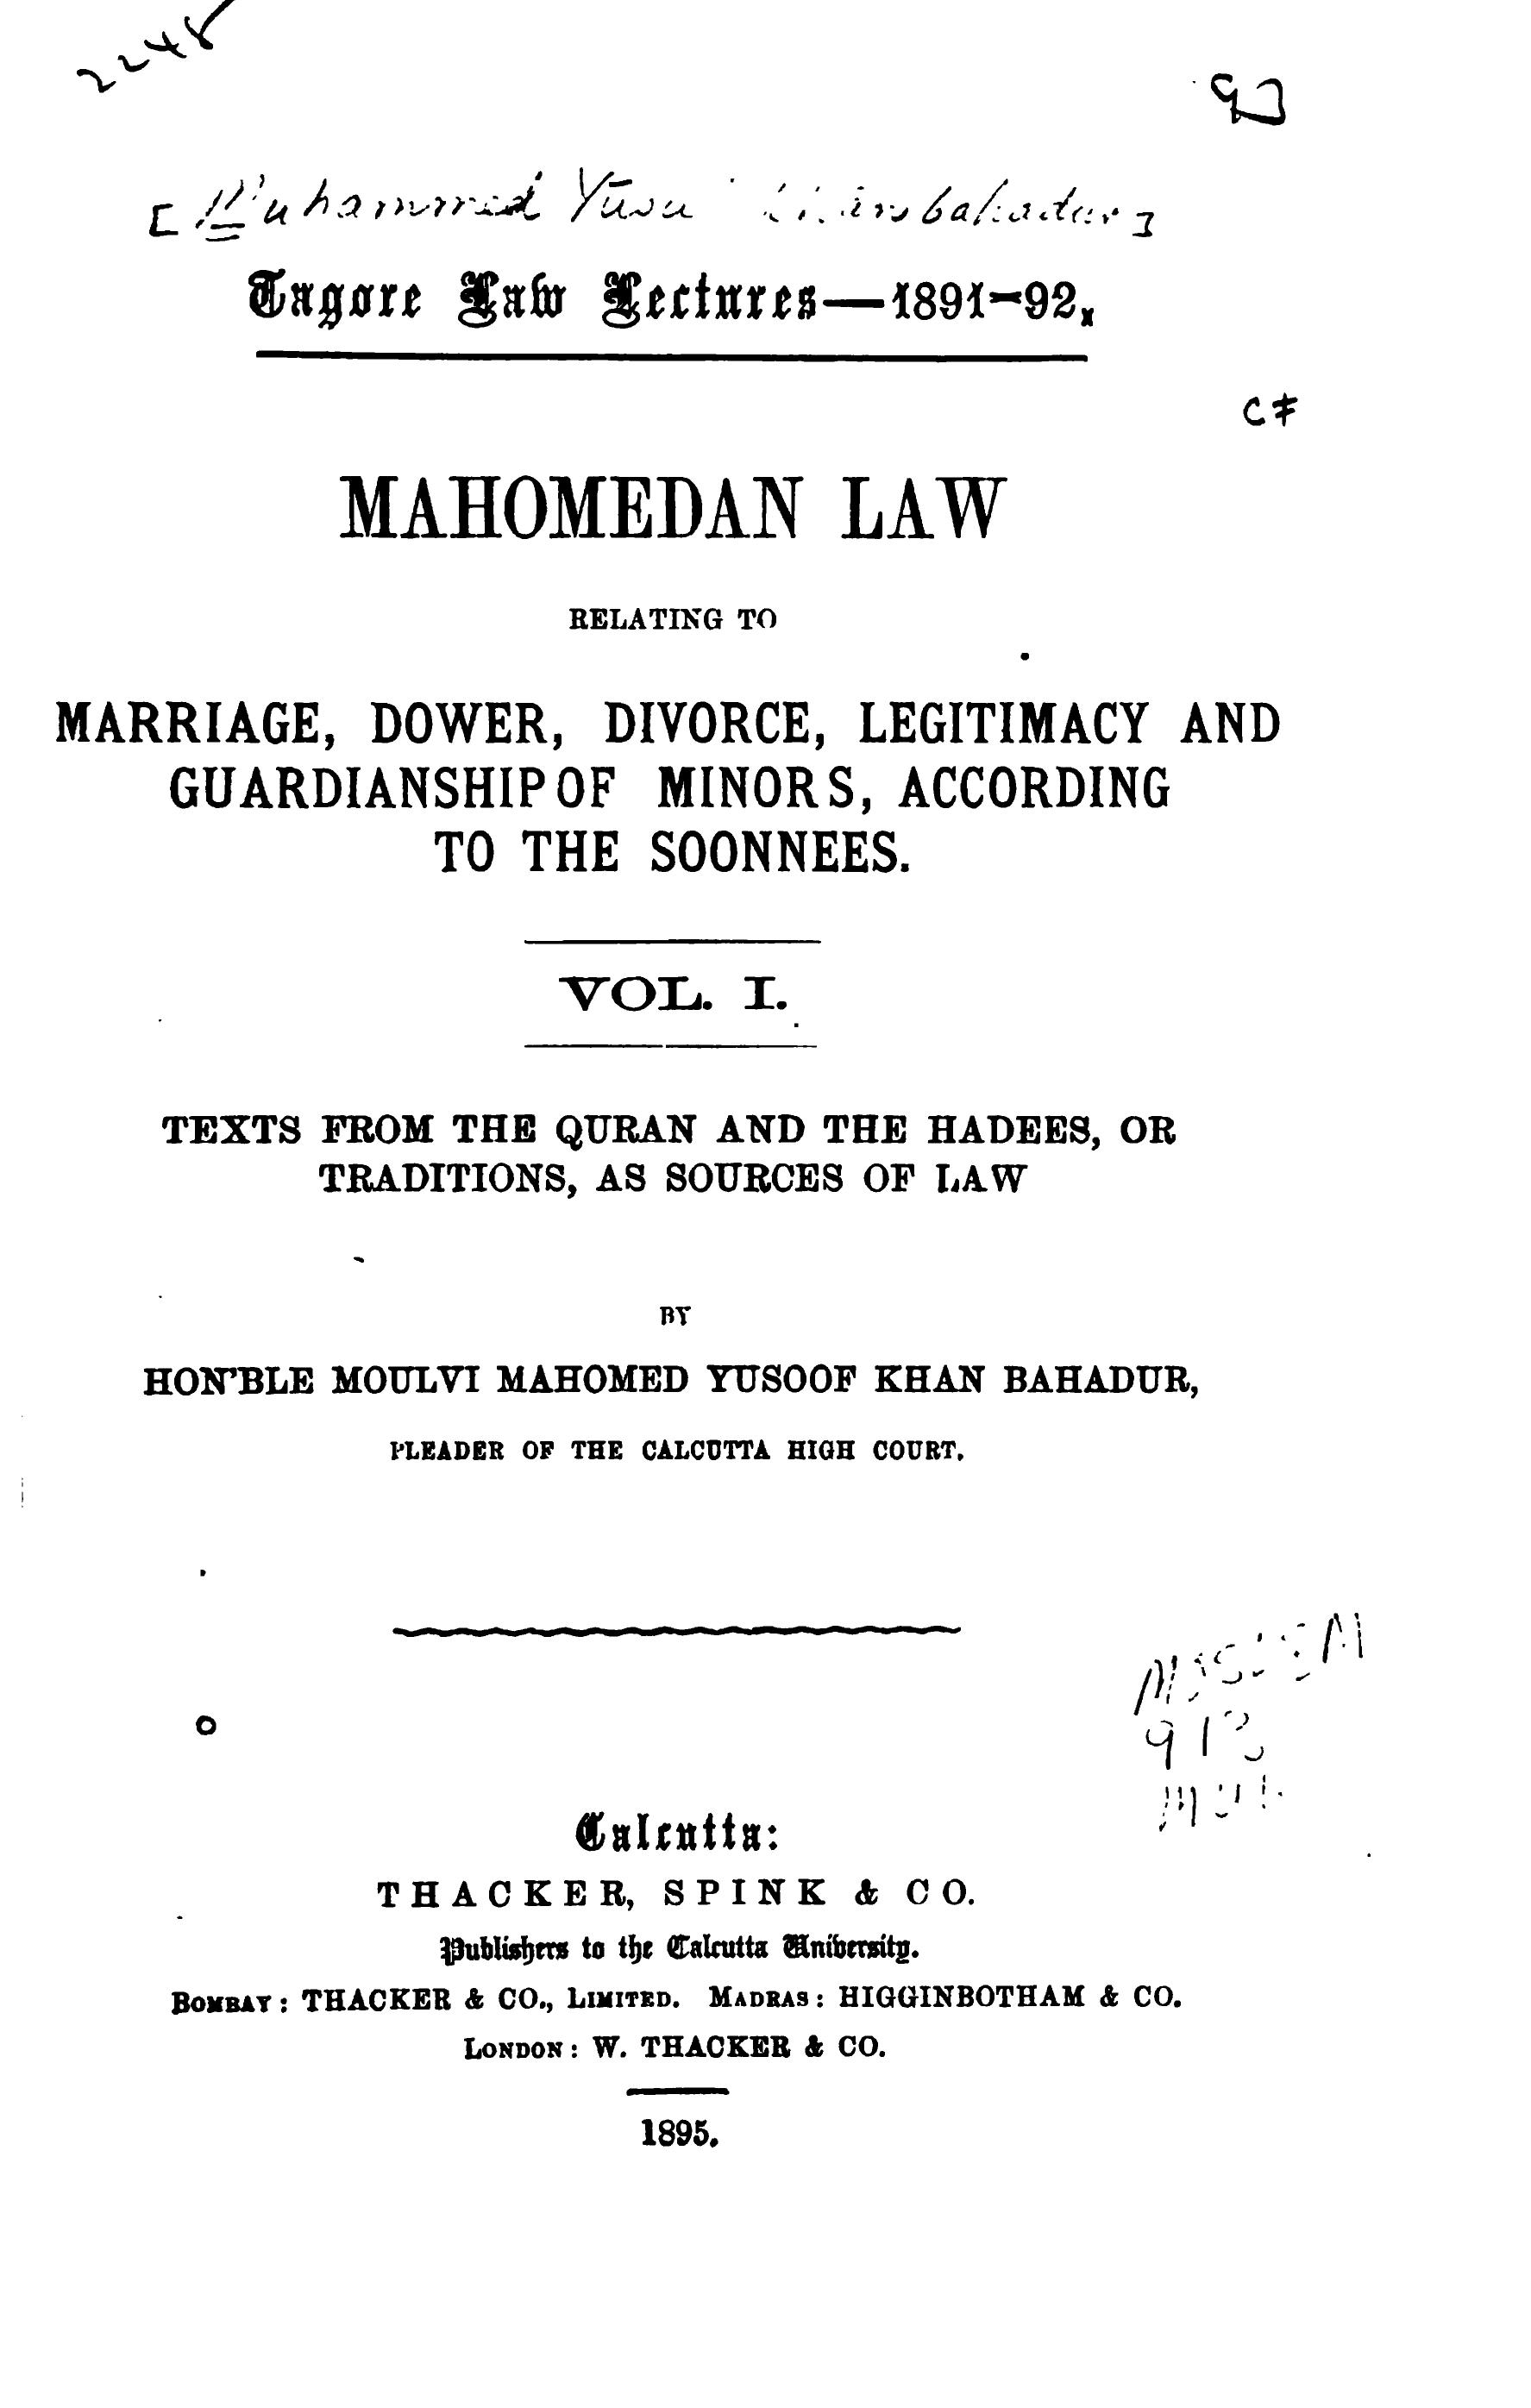 2248
[Muhammed Yusu Khanbahadur]
Tagore Law Lectures—1891-92.
C
MAHOMEDAN LAW
RELATING TO
MARRIAGE, DOWER, DIVORCE, LEGITIMACY AND
GUARDIANSHIP OF MINORS, ACCORDING
TO THE SOONNEES.
VOL. I.
TEXTS FROM THE QURAN AND THE HADEES, OR
TRADITIONS, AS SOURCES OF LAW
BY
HON'BLE MOULVI MAHOMED YUSOOF KHAN BAHADUR,
PLEADER OF THE CALCUTTA HIGH COURT.
Calcutta:
THACKER, SPINK & CO.
Publishers to the Calcutta University.
BOMBAY: THACKER & CO., LIMITED. MADRAS: HIGGINBOTHAM & CO.
LONDON: W. THACKER & CO.
1895.